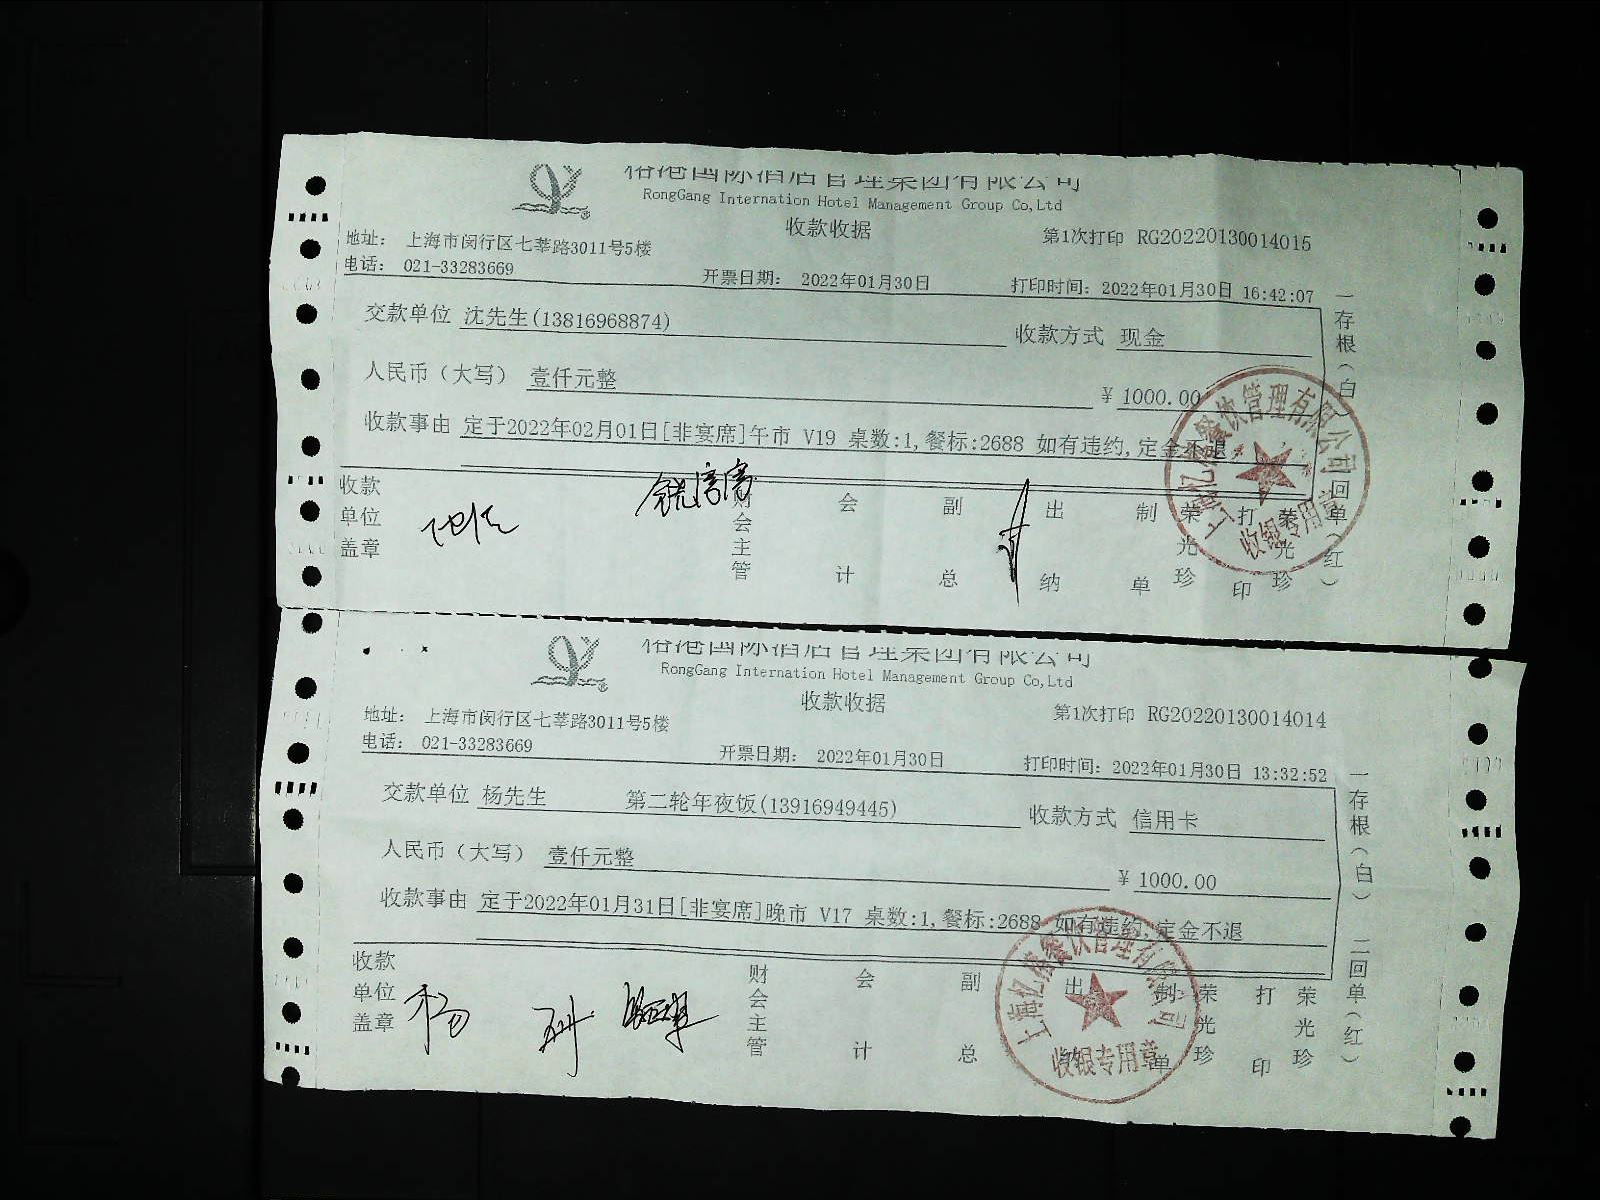 榕港国际酒店管理集团有限公司
RongGang Internation Hotel Management Group Co,Ltd
收款收据
地址： 上海市闵行区七莘路3011号5楼
第1次打印 RG20220130014015
电话： 021-33283669
开票日期： 2022年01月30日
打印时间：2022年01月30日 16:42:07
交款单位 沈先生(13816968874)
收款方式 现金
人民币（大写） 壹仟元整
￥1000.00
收款事由 定于2022年02月01日[非宴席]午市 V19 桌数:1,餐标:2688 如有违约,定金不退
收款单位盖章
财会主管
会计
副总
出纳
制单
荣光珍
打印
荣光珍
一存根（白
回单（红）
餐饮管理有限公司
收银专用章
榕港国际酒店管理集团有限公司
RongGang Internation Hotel Management Group Co,Ltd
收款收据
地址： 上海市闵行区七莘路3011号5楼
第1次打印 RG20220130014014
电话： 021-33283669
开票日期： 2022年01月30日
打印时间：2022年01月30日 13:32:52
交款单位 杨先生 第二轮年夜饭(13916949445)
收款方式 信用卡
人民币（大写） 壹仟元整
￥1000.00
收款事由 定于2022年01月31日[非宴席]晚市 V17 桌数:1,餐标:2688 如有违约,定金不退
收款单位盖章
杨
财会主管
会计
副总
出
制单
荣光珍
打印
荣光珍
一存根（白）
二回单（红）
上海亿榕餐饮管理有限公司
收银专用章